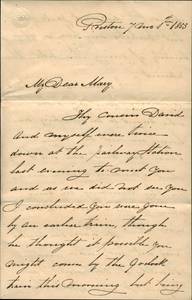 Preston 7 mo 1st 1863
My Dear Mary
Thy cousin David
and myself were twice
down at the railway station
last evening to meet you
and as we did not see you
I concluded you were gone
by an earlier train, though
he thought it possible you
might come by the 6 o'clock
train this morning but being